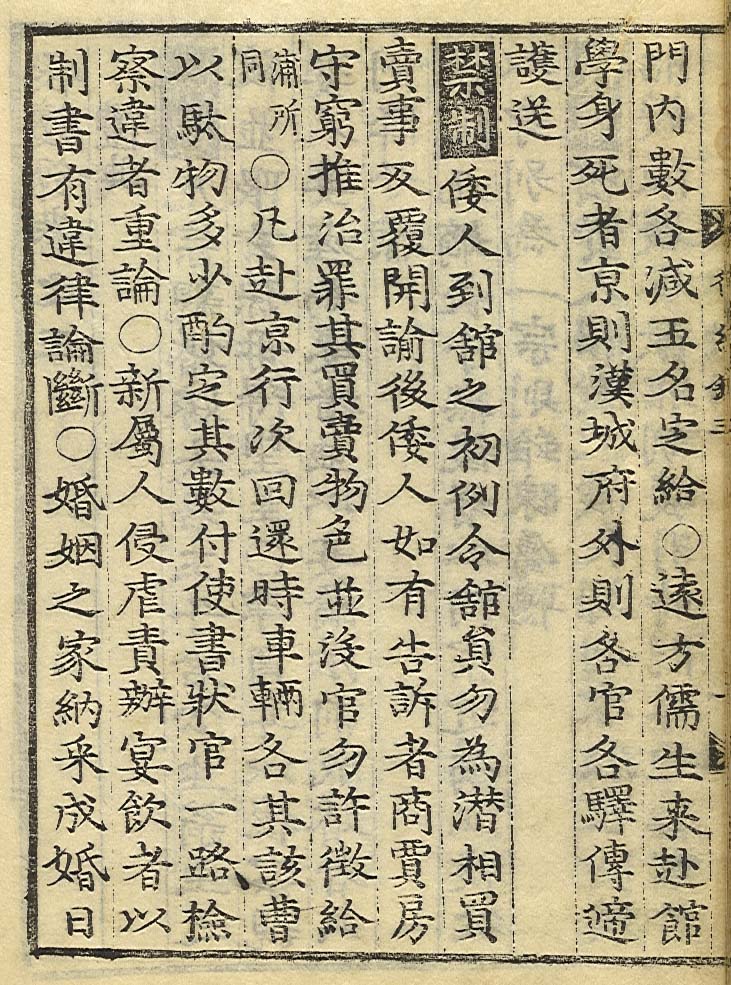 門內數各減五名定給○遠方儒生来赴館
學身死者京則漢城府外則各官各驛傳遞
護送
禁制 倭人到舘之初例令舘負勿為潜相買
賣事反覆開諭後倭人如有告訴者商賈房
守窮推治罪其買賣物色並沒官勿許徵給
浦所同○凡赴京行次回還時車輛各其該曹
以駄物多少酌定其數付使書狀官一路撿
察違者重論○新屬人侵虐責辦宴飲者以
制書有違律論斷○婚姻之家納采成婚日